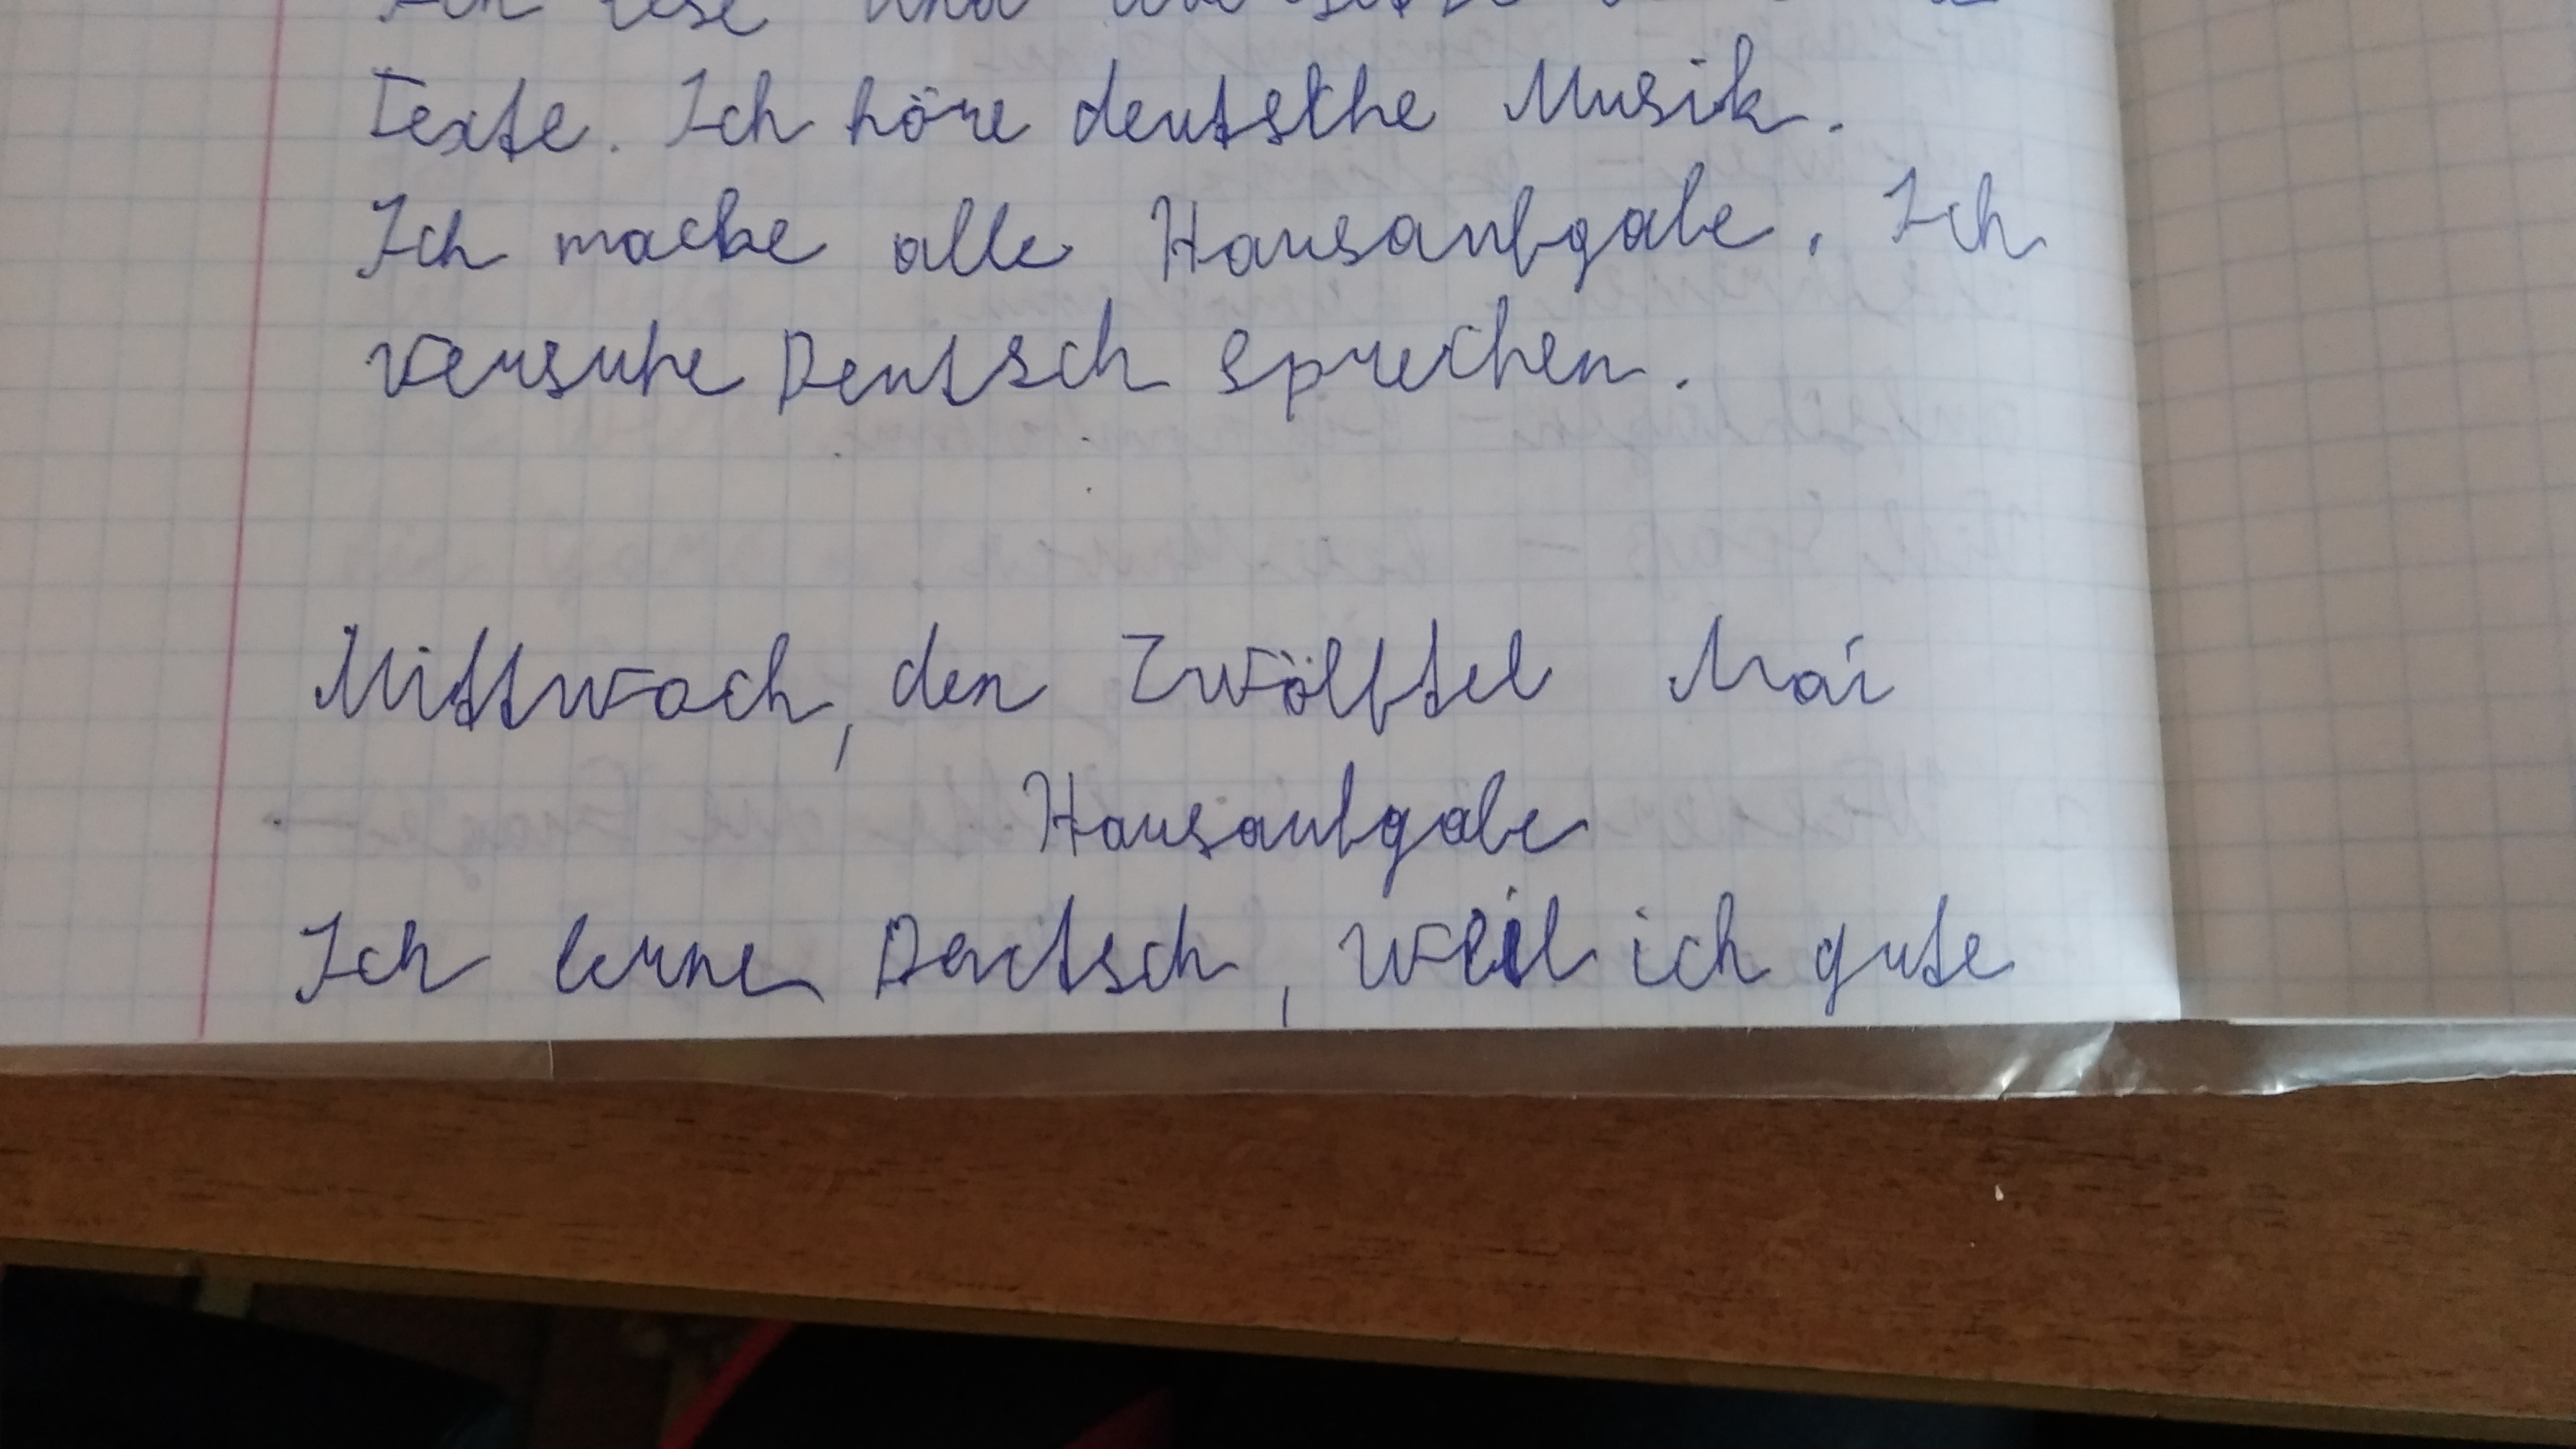 Ich lese und
Texte. Ich höre deutsche Musik.
Ich mache alle Hausaufgabe. Ich
versuhe Deutsch sprechen.
Mittwoch, den Zwölftel Mai
Hausaufgabe
Ich lerne Deutsch, weil ich gute